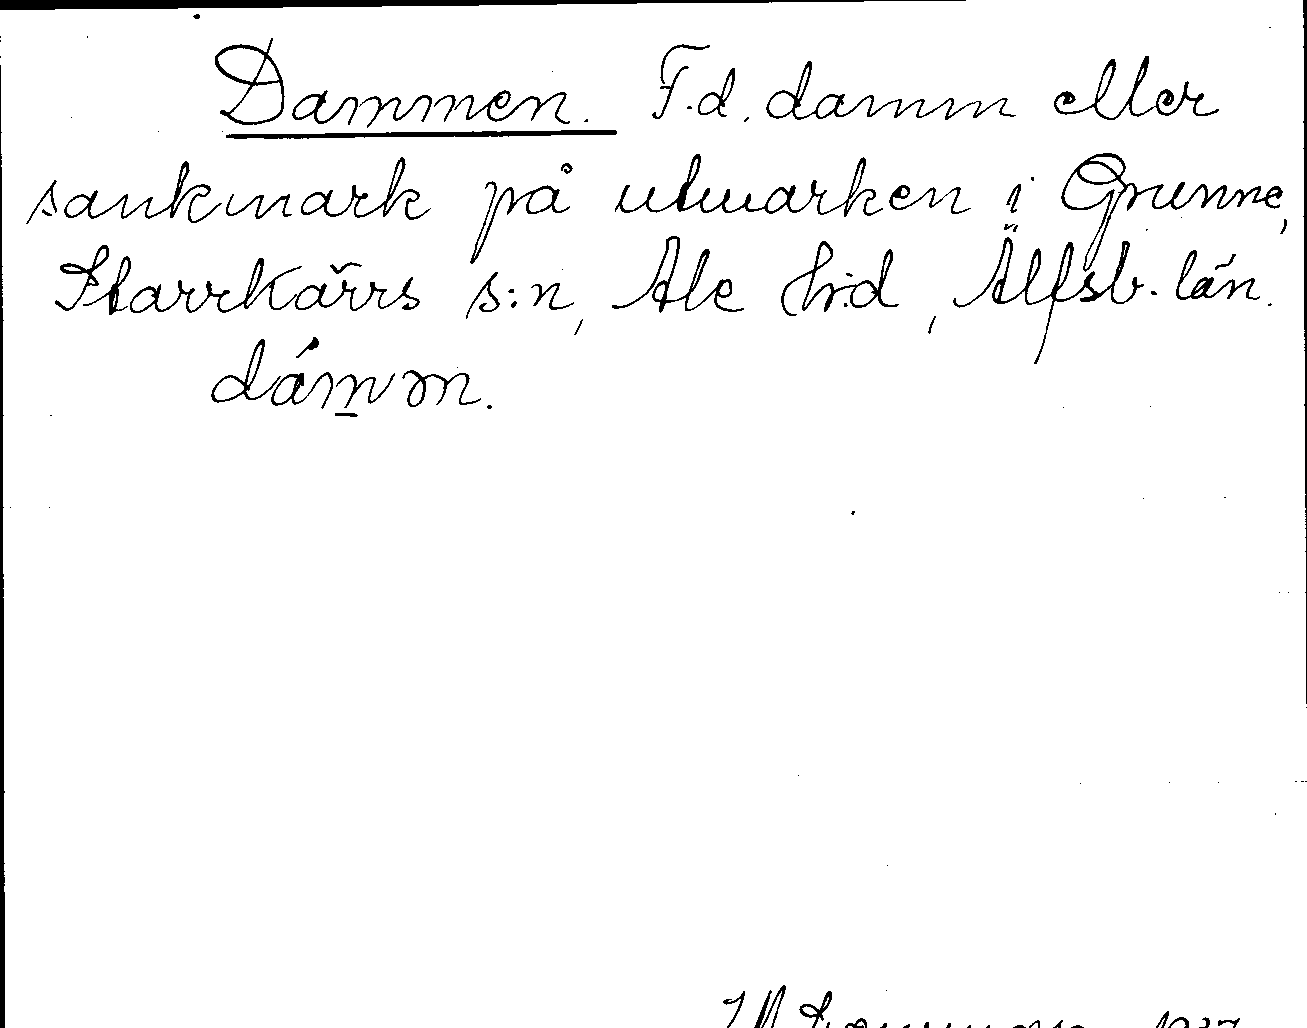 Dammen. F.d. damm eller
sankmark på utmarken i Grunne,
Starrkärrs s:n, Ale hrd, Älfsb. län.
dám̲m.
1937